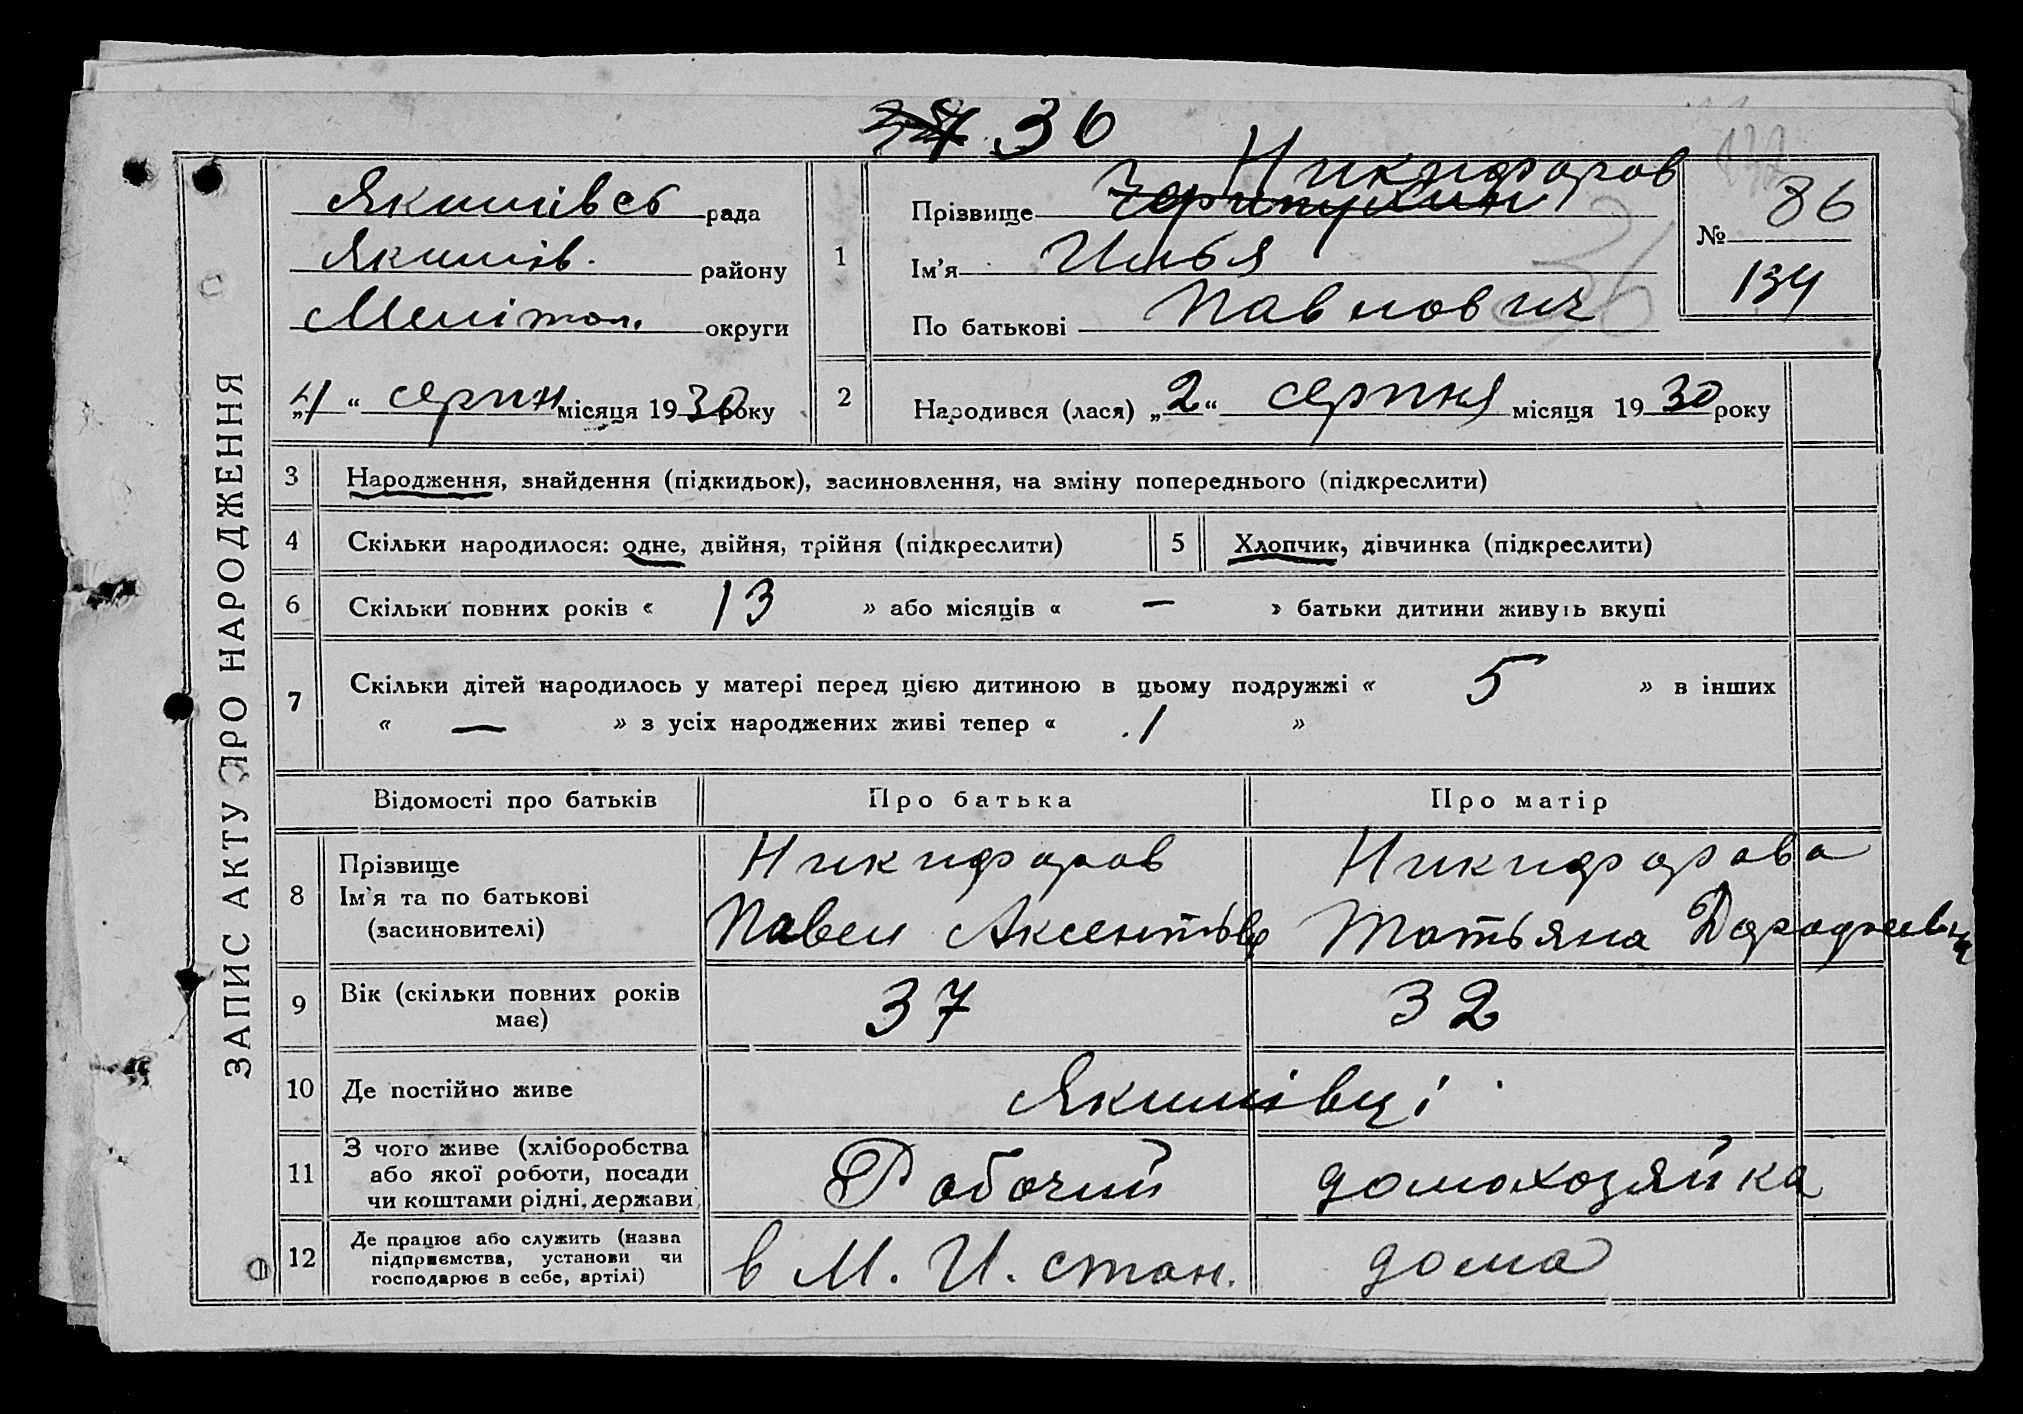 36
ЗАПИС АКТУ ПРО НАРОДЖЕННЯ
Якимівсь рада
Якимів. району
Мелітоп. округи
„4“ серпн місяця 1930 року
1
Прізвище Никифоров
Ім'я Илья
По батькові Павлович
№ 86
134
36
2
Народився (лася) „2“ серпня місяця 1930 року
3 Народження, знайдення (підкидьок), засиновлення, на зміну попереднього (підкреслити)
4 Скільки народилося: одне, двійня, трійня (підкреслити) 5 Хлопчик, дівчинка (підкреслити)
6 Скільки повних років « 13 » або місяців « — » батьки дитини живуть вкупі
7 Скільки дітей народилось у матері перед цією дитиною в цьому подружжі « 5 » в інших
« — » з усіх народжених живі тепер « 1 »
Відомості про батьків Про батька Про матір
8 Прізвище Никифоров Никифорова
Ім'я та по батькові Павел Татьяна
(засиновителі)
9 Вік (скільки повних років має) 37 32
10 Де постійно живе Якимівці
11 З чого живе (хліборобства
або якої роботи, посади Робочий домохозяйка
чи коштами рідні, держави
12 Де працює або служить (назва
підприємства, установи чи в М. И. стан. дома
господарює в себе, артілі)